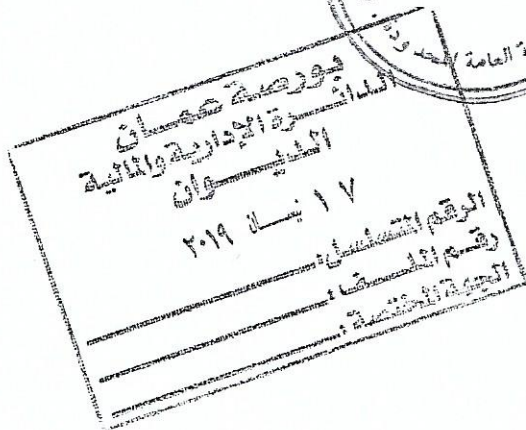 العامة المحدودة
بورصة عمان
الدائرة الإدارية والمالية
الديوان
١٧ نيسان ٢٠١٩
الرقم المتسلسل:
رقم الملف:
الجهة المختصة: